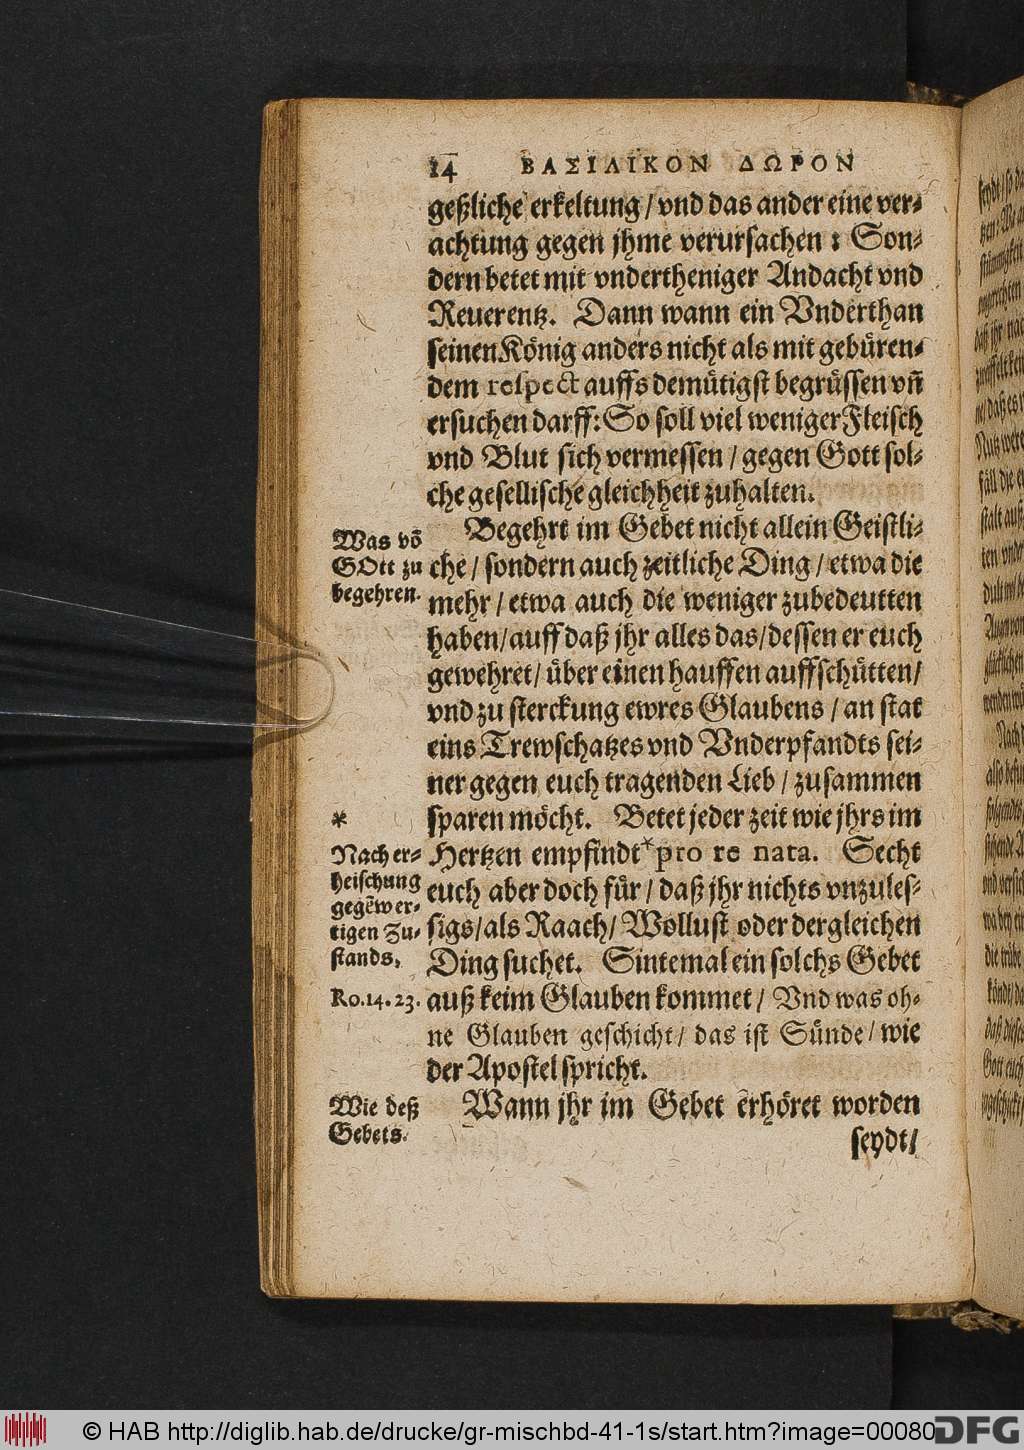 14 ΒΑΣΙΛΙΚΟΝ ΔΩΡΟΝ
geßliche erkeltung / vnd das ander eine ver⸗
achtung gegen jhme verursachen: Son⸗
dern betet mit vndertheniger Andacht vnd
Reuerentz. Dann wann ein Vnderthan
seinen König anders nicht als mit gebüren⸗
dem respect auffs demütigst begrüssen vñ
ersuchen darff: So soll viel weniger Fleisch
vnd Blut sich vermessen / gegen Gott sol⸗
che gesellische gleichheit zuhalten.
Was võ
GOtt zu
begehren.
Begehrt im Gebet nicht allein Geistli⸗
che / sondern auch zeitliche Ding / etwa die
mehr / etwa auch die weniger zubedeutten
haben / auff daß jhr alles das / dessen er euch
gewehret / über einen hauffen auffschütten /
vnd zu sterckung ewres Glaubens / an stat
eins Trewschatzes vnd Vnderpfandts sei⸗
ner gegen euch tragenden Lieb / zusammen
sparen möcht. Betet jeder zeit wie jhrs im
Hertzen empfindt * pro re nata. Secht
euch aber doch für / daß jhr nichts vnzules⸗
sigs / als Raach / Wollust oder dergleichen
Ding suchet. Sintemal ein solchs Gebet
auß keim Glauben kommet / Vnd was oh⸗
ne Glauben geschicht / das ist Sünde / wie
der Apostel spricht.
*
Nach er⸗
heischung
gegẽwer⸗
tigen Zu⸗
stands.
Ro. 14. 23.
Wie deß
Gebets.
Wann jhr im Gebet erhöret worden
seydt /
© HAB http://diglib.hab.de/drucke/gr-mischbd-41-1s/start.htm?image=00080
DFG